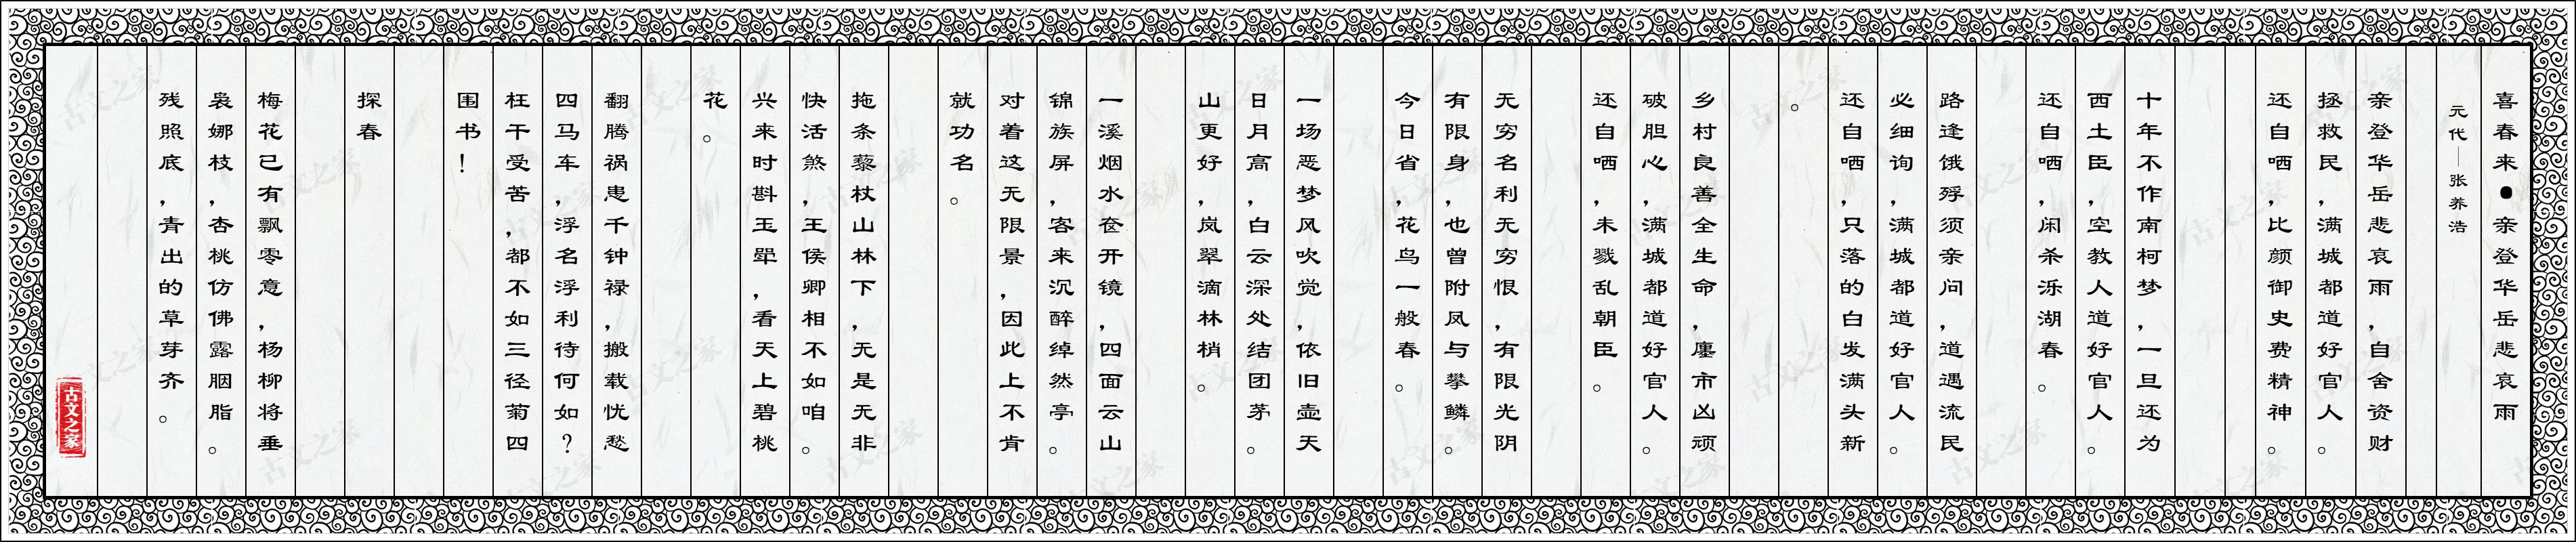 喜春来●亲登华岳悲哀雨
元代——张养浩
亲登华岳悲哀雨，自舍资财
拯救民，满城都道好官人。
还自哂，比颜御史费精神。
十年不作南柯梦，一旦还为
西土臣，空教人道好官人。
还自哂，闲杀泺湖春。
路逢饿殍须亲问，道遇流民
必细询，满城都道好官人。
还自哂，只落的白发满头新
。
乡村良善全生命，廛市凶顽
破胆心，满城都道好官人。
还自哂，未戮乱朝臣。
无穷名利无穷恨，有限光阴
有限身，也曾附凤与攀鳞。
今日省，花鸟一般春。
一场恶梦风吹觉，依旧壶天
日月高，白云深处结团茅。
山更好，岚翠滴林梢。
一溪烟水奁开镜，四面云山
锦族屏，客来沉醉绰然亭。
对着这无限景，因此上不肯
就功名。
拖条藜杖山林下，无是无非
快活煞，王侯卿相不如咱。
兴来时斟玉斝，看天上碧桃
花。
翻腾祸患千钟禄，搬载忧愁
四马车，浮名浮利待何如？
枉干受苦，都不如三径菊四
围书！
探春
梅花已有飘零意，杨柳将垂
袅娜枝，杏桃仿佛露胭脂。
残照底，青出的草芽齐。
古文之家